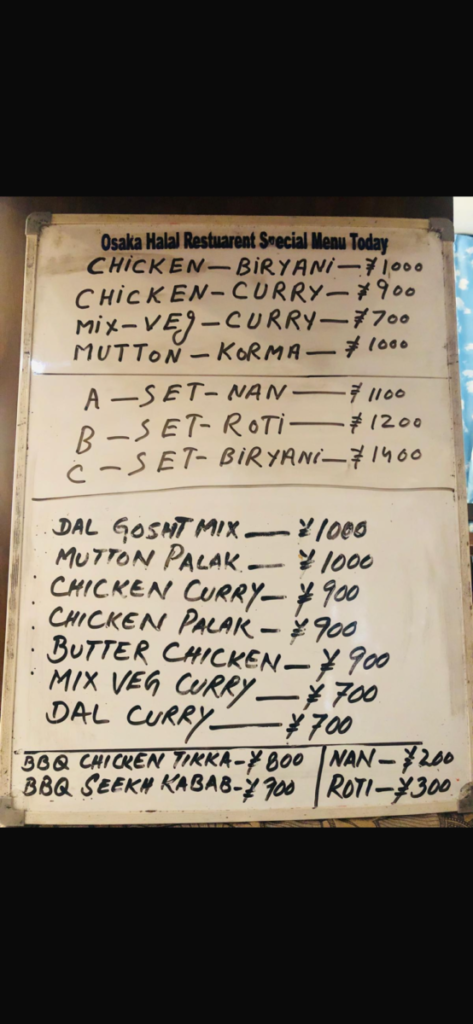 Osaka Halal Restuarent Special Menu Today
CHICKEN—BIRYANI—¥1,000
CHICKEN-CURRY—¥900
MIX-VEG-CURRY—¥700
MUTTON—KORMA—¥1000
A—SET-NAN—¥1100
B—SET-ROTI—¥1200
C—SET-BIRYANI—¥1400
DAL GOSHT MIX—¥1000
MUTTON PALAK—¥1000
CHICKEN CURRY—¥900
CHICKEN PALAK—¥900
BUTTER CHICKEN—¥900
MIX VEG CURRY—¥700
DAL CURRY—¥700
BBQ CHICKEN TIKKA-¥800
BBQ SEEKH KABAB-¥900
NAN—¥200
ROTI—¥300